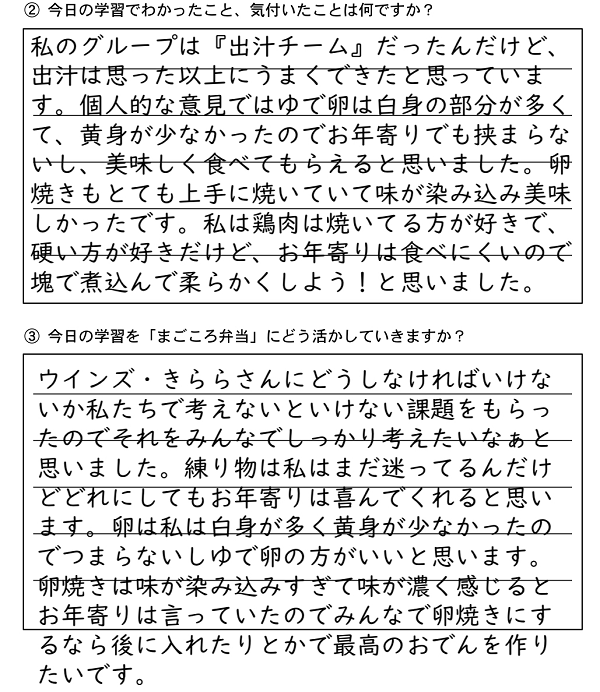 ② 今日の学習でわかったこと、気付いたことは何ですか？
私のグループは『出汁チーム』だったんだけど、
出汁は思った以上にうまくできたと思っていま
す。個人的な意見ではゆで卵は白身の部分が多く
て、黄身が少なかったのでお年寄りでも挟まらな
いし、美味しく食べてもらえると思いました。卵
焼きもとても上手に焼いていて味が染み込み美味
しかったです。私は鶏肉は焼いてる方が好きで、
硬い方が好きだけど、お年寄りは食べにくいので
塊で煮込んで柔らかくしよう！と思いました。
③ 今日の学習を「まごころ弁当」にどう活かしていきますか？
ウインズ・きららさんにどうしなければいけな
いか私たちで考えないといけない課題をもらっ
たのでそれをみんなでしっかり考えたいなぁと
思いました。練り物は私はまだ迷ってるんだけ
どどれにしてもお年寄りは喜んでくれると思い
ます。卵は私は白身が多く黄身が少なかったの
でつまらないしゆで卵の方がいいと思います。
卵焼きは味が染み込みすぎて味が濃く感じると
お年寄りは言っていたのでみんなで卵焼きにす
るなら後に入れたりとかで最高のおでんを作り
たいです。